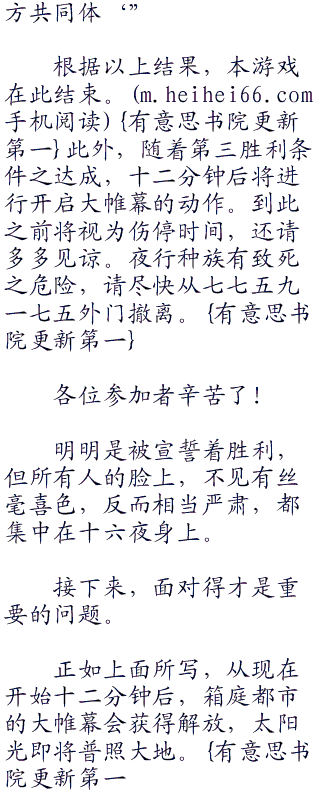 方共同体‘”
根据以上结果，本游戏
在此结束。(m.heihei66.com
手机阅读){有意思书院更新
第一}此外，随着第三胜利条
件之达成，十二分钟后将进
行开启大帷幕的动作。到此
之前将视为伤停时间，还请
多多见谅。夜行种族有致死
之危险，请尽快从七七五九
一七五外门撤离。{有意思书
院更新第一}
各位参加者辛苦了！
明明是被宣誓着胜利，
但所有人的脸上，不见有丝
毫喜色，反而相当严肃，都
集中在十六夜身上。
接下来，面对得才是重
要的问题。
正如上面所写，从现在
开始十二分钟后，箱庭都市
的大帷幕会获得解放，太阳
光即将普照大地。{有意思书
院更新第一